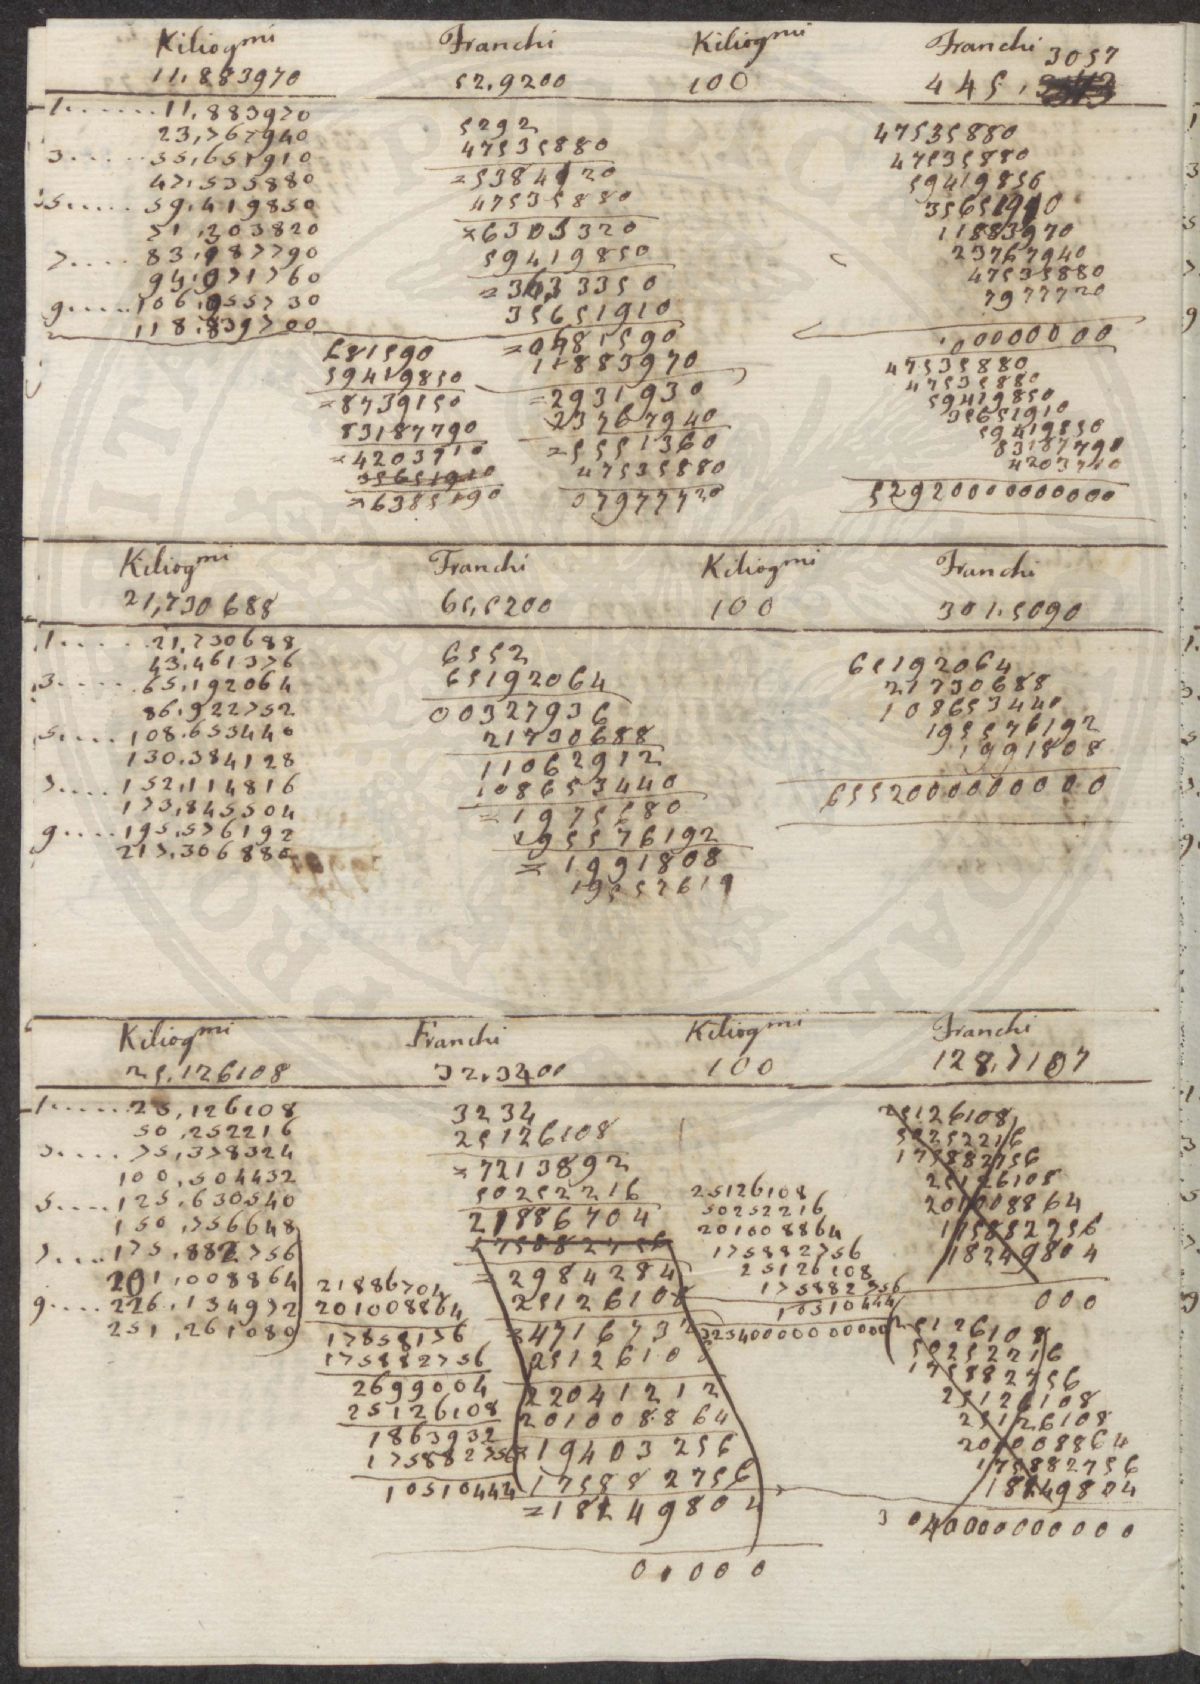 Kiliogmi Franchi Kiliogmi Franchi
11,883970 52,9200 100 445,3057
1.......11,883970
23,767940
3.....35,651910
47,535880
5.....59,419850
71,303820
7....83,187790
94,071760
9....106,955730
118,839700
5292
47535880
=5384120
47535880
=6305320
59419850
=3633350
35651910
=0681590
11883970
=2931930
23767940
=5551360
47535880
07977720
681590
59419850
=8739150
83187790
=4203710
35651910
=6385190
47535880
47535880
59419856
35651910
11883970
23767940
47535880
7977720
00000000
47535880
47535880
59419850
35651910
59419850
83187790
4203710
5292000000000
Kiliogmi Franchi Kiliogmi Franchi
21,730688 65,5200 100 301.5090
1......21,730688
43,461376
3.....65,192064
86,922752
5....108.653440
130.384128
7....152,114816
173,845504
9....195,576192
217,306880
6552
65192064
00327936
21730688
11062912
108653440
=1975680
195576192
=1991808
19557619
65192064
21730688
108653440
195576192
1991808
6552000000000
Kiliogmi Franchi Kiliogmi Franchi
25,126108 32,3400 100 128,7107
1.....25,126108
50,252216
3....75,378324
100,504432
5....125,630540
150,756648
7....175,882756
201,008864
9....226,134972
251,261080
3234
25126108
=7213892
50252216
21886704
175882756
=2984284
25126108
=4716732
2512610
22041212
201008864
=19403256
175882756
=18249804
0,000
21886704
201008864
17858176
175882756
2699004
25126108
1863932
175882756
10510444
25126108
50252216
201008864
175882756
25126108
175882756
10510444
3234000000000
25126108
50252216
175882756
25126108
201008864
175882756
18249804
000
25126108
50252216
175882756
25126108
25126108
201008864
175882756
18249804
3 040000000000